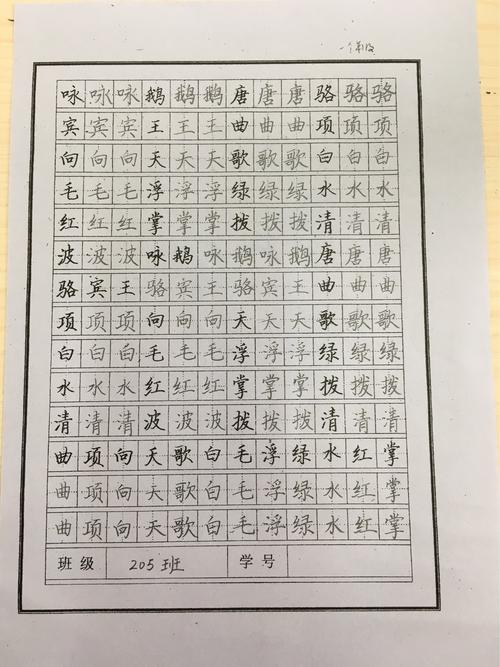 咏咏咏鹅鹅鹅唐唐唐骆骆骆
宾宾宾王王王曲曲曲项项项
向向向天天天歌歌歌白白白
毛毛毛浮浮浮绿绿绿水水水
红红红掌掌掌拨拨拨清清清
波波波咏鹅咏鹅咏鹅唐唐唐
骆宾王骆宾王骆宾王曲曲曲
项项项向向向天天天歌歌歌
白白白毛毛毛浮浮浮绿绿绿
水水水红红红掌掌掌拨拨拨
清清清波波波拨拨拨清清清
曲项向天歌白毛浮绿水红掌
曲项向天歌白毛浮绿水红掌
曲项向天歌白毛浮绿水红掌
班级 205班 学号